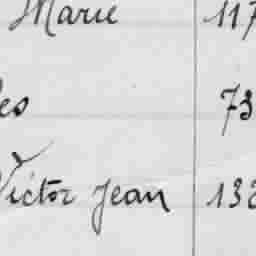 Marie 117
es 73
Victor Jean 132